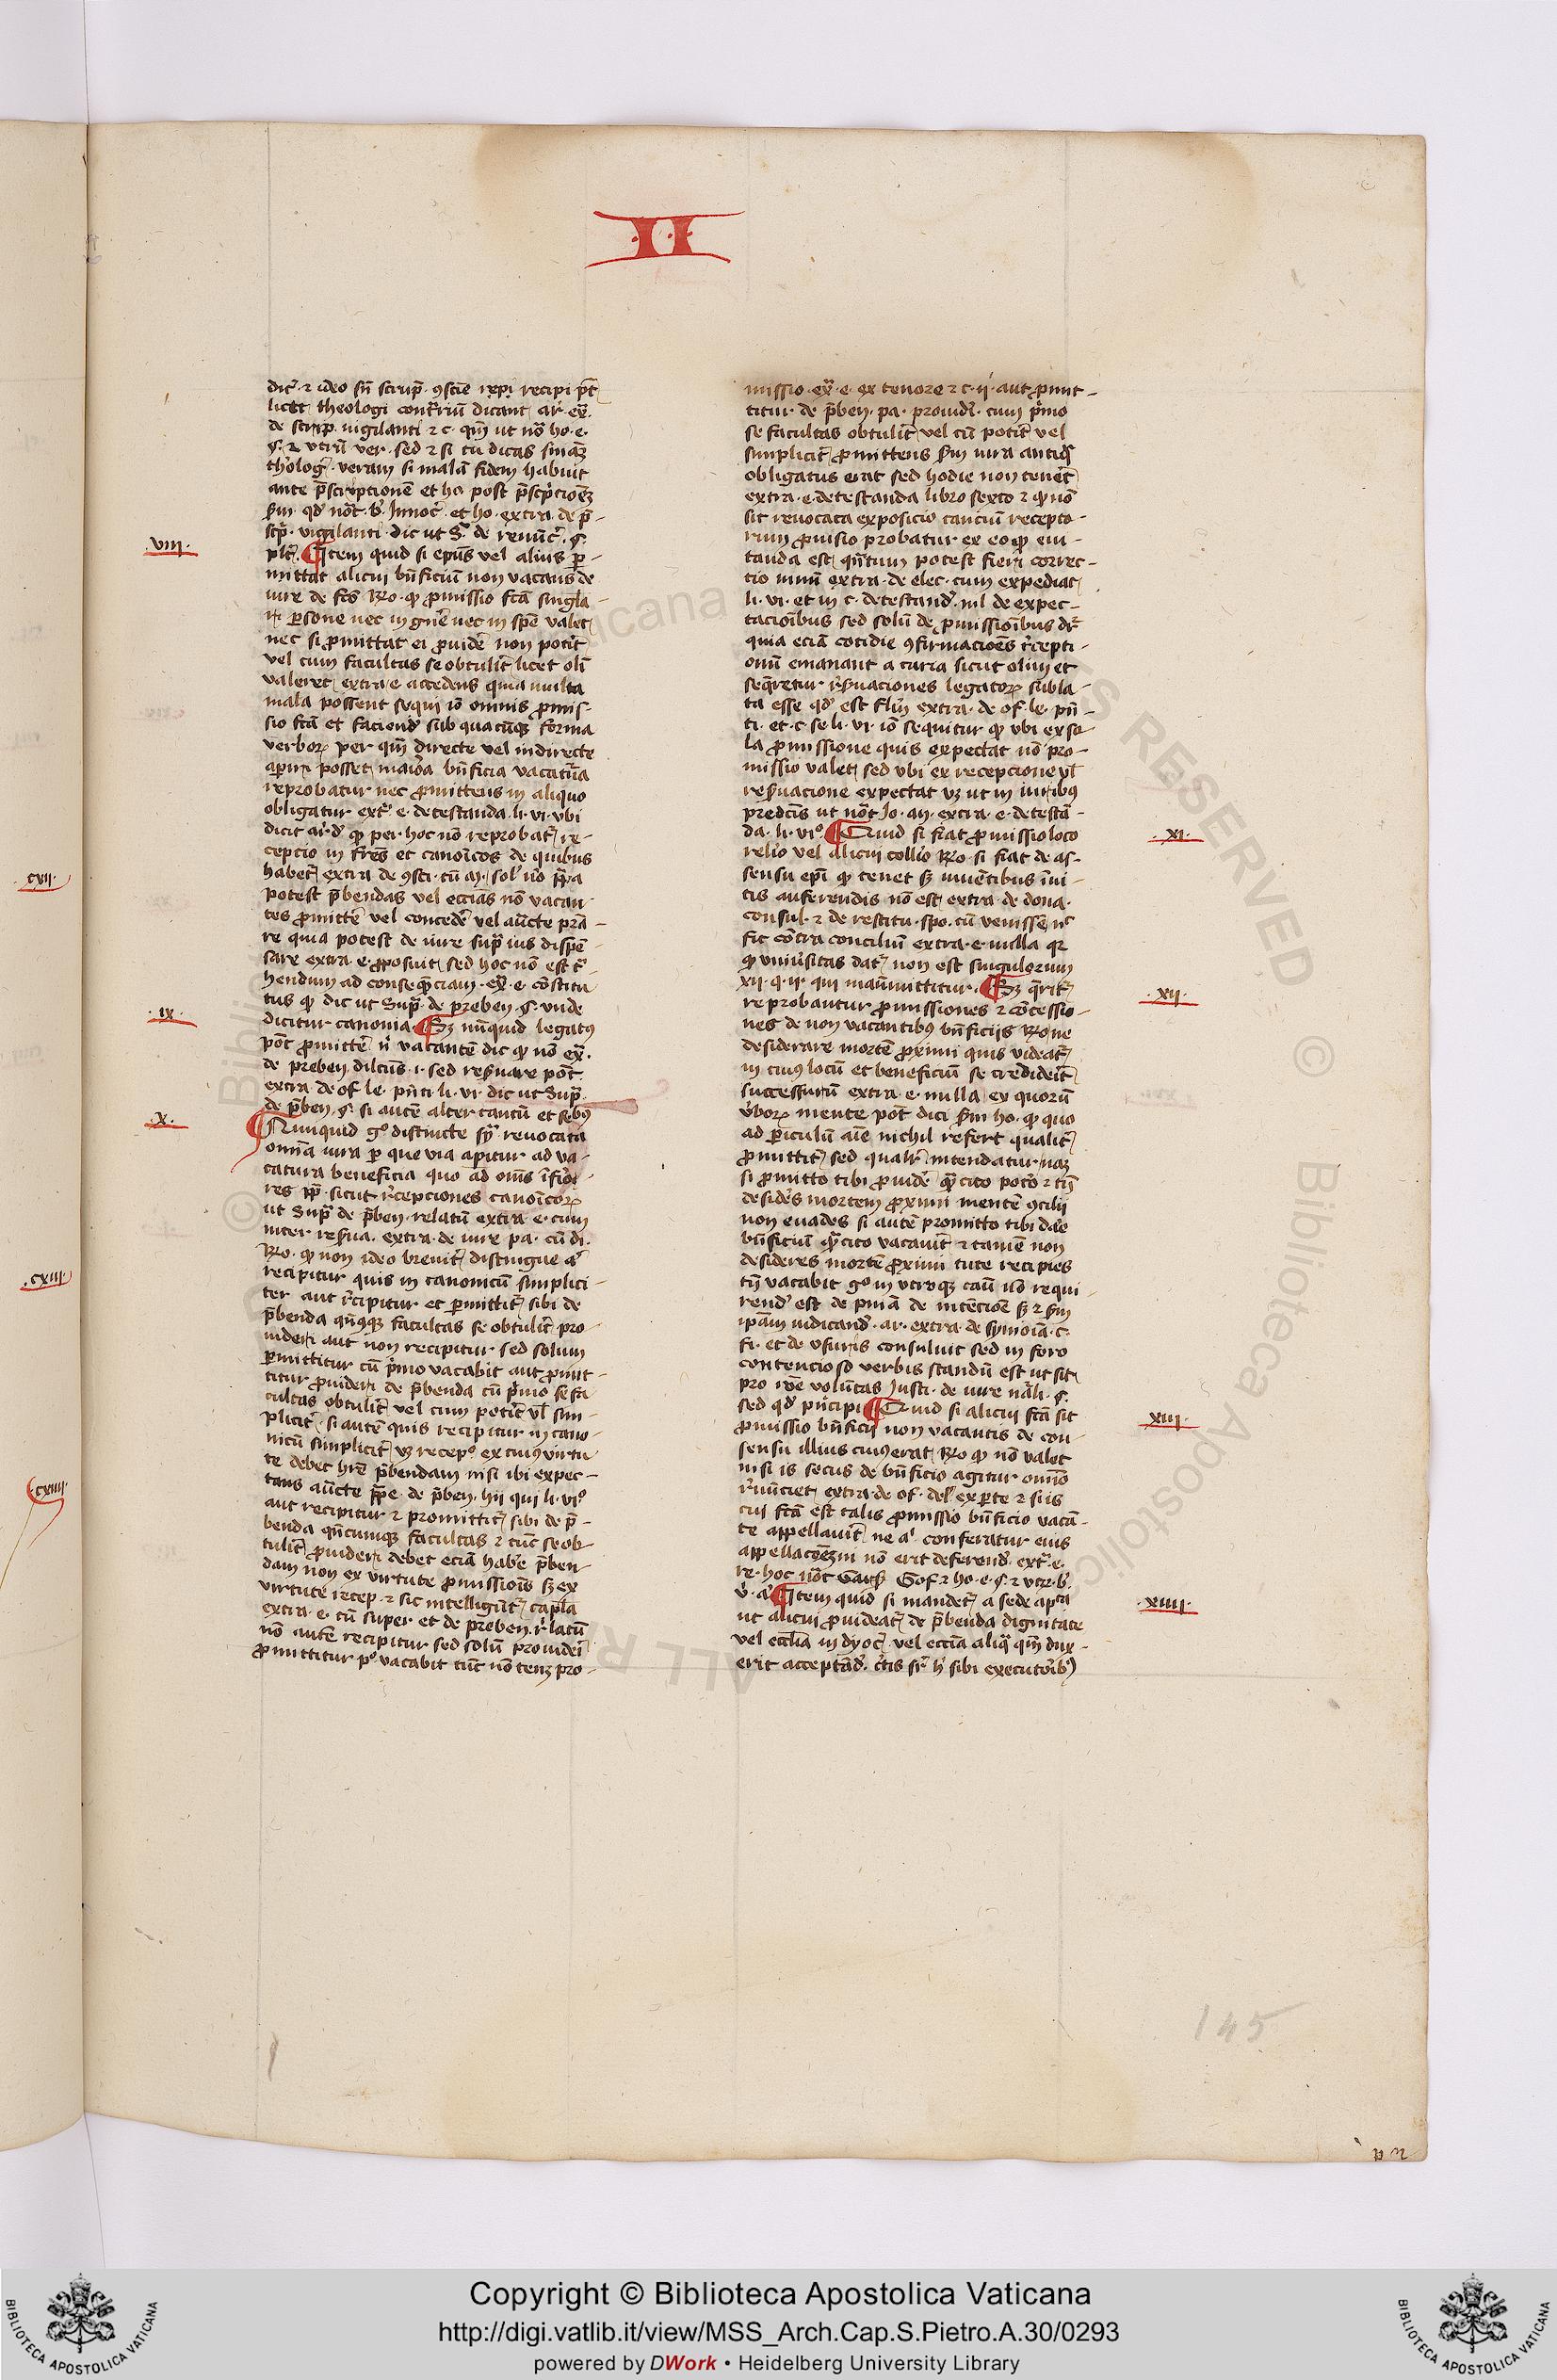 II
dic̄ ⁊ ideo sn̄ scrip̄ · ꝯsciē repi recipi pt̄
licet theologi contͬriū dicant ar̄ ex̄ ·
de scrip̄ · vigilanti ⁊ c · qm̄ ut nō ho · e ·
ante p̄scriptionē et ho post p̄scͥptioēꝫ
scp̄ · vigilanti · dic ut s̄ de renūc̄ · §·
·viii·
plr̄ · Item quid si epūs vel alius ꝑ-
mittat alicui bn̄ficiū non vacans de
iure de fc̄s Ro · ꝙ ꝓmissio fcā singla-
ri ꝑsone nec in gn̄e nec in spē valet
nec si ꝓmittat ei ꝓuidē non potit̄
vel cum facultas se obtulit̄ licet oli
valeret extra e accedens quia multa
mala possent sequi iō omnis ꝓmis-
sio fcā et faciend̄ sub quacūqꝫ forma
verboꝝ per qm̄ directe vel indirecte
apiri posset maiōa bn̄ficia vacatūa
reprobatur nec ꝓmittens in aliquo
obligatur ext̄ · e · detestanda · li · vi · vbi
dicit ar̄ d̄ ꝙ per · hoc nō reprobat̄ re-
ceptio in fres̄ et canoīcos de quibus
habet̄ extra de ꝯsti · cū m̄ · sol̓ nō ꝑp̄a
potest p̄bendas vel eccīas nō vacan
tes ꝓmittē vel concedē vel aūcte pͬra-
re quia potest de iure supͬ ius dispē-
sare extra · e · ꝓposuit sed hoc nō est tͬ
hendum ad conseqͬēciam · ex̄ · e · cōstitu
tus ꝙ dic ut supͬ de preben · § · vnde
·ix·
dicitur canonia · Sꝫ nūquid legatꝰ
pōt ꝓmittē nͦ vacantē dic ꝙ nō ex̄ ·
de preben dilcūs · i · sed resͬuare pōt
extra de of · le · pn̄ti · li · vi · dic ut supͬ
de p̄ben · § · si autē alter tantū et sebꝰ
·x·
Nunquid gͦ distincte sꝫ reuocata
omnia iura ꝑ que via apitur ad va-
catura beneficia quo ad oms̄ īfiō-
res pp̄ · sicut rͤcepciones canoīcoꝝ
ut supͬ de p̄ben · relatū extra · e · cum
inter resua · extra · de iure pa · cū di ·
Ro · ꝙ non ideo breuit̄ distingue aͧ
recipitur quis in canonicū simplici-
ter aut rͤcipitur et ꝓmittit̄ sibi de
p̄benda qn̄qꝫ facultas se obtulit̄ pro-
uideri aut non recipitur sed solum
ꝓmittitur cū pͥmo vacabit aut ꝓmit-
titur ꝓuideri de p̄benda cū pͥmo se fa
cultas obtulit̄ vel cum potit̄ vl̓ sim-
plicit̄ · si autē quis recipitur in cano-
nicū simplicit̄ vꝫ recepͦ · ex cuiꝰ virtu
te debet hrē p̄bendam nisi ibi expec-
tans aūcte pp̄e · de p̄ben · hii qui li · viͦ
aut recipitur ⁊ promittit̄ sibi de p̄-
benda qn̄cumqꝫ facultas ⁊ tūc se ob-
tulit̄ ꝓuideri debet eciā habē p̄ben-
dam non ex virtute ꝓmissiōis sꝫ ex
virtute recep · ⁊ sic intelligūt̄ capl̄a
extra · e · cū super · et de preben · rͤlatū
nō autē recipitur sed solū prouideri
ꝓmittitur pͦ vacabit tūc nō tenꝫ pro-
missio · ex̄ · e · ex tenore ⁊ c · ii · aut ꝓmit-
titur · de p̄ben · pa · prouid̄i · cum pͥmo
se facultas obtulit̄ vel cū potit̄ vel
simplicit̄ ꝓmittens sm̄ iura antiqͣ
obligatus erat sed hodie non tenet̄
extra · e · detestanda libro sexto ⁊ ꝙ nō
sit reuocata exposicio tanciū recepto-
rum ꝓuisio probatur ex eo ꝙ eui-
tanda est qn̄tum potest fieri correc-
tio iuriū extra · de elec · cum expediat
li · vi · et in c · detestand̄ · nil de expec-
tacioībus sed solū de ꝓmissioībus dr̄
quia eciā cotidie ꝯfirmacioēs rͤcepti-
onū emanant a curia sicut olim et
seqͬretur rͤsͬuaciones legatoꝝ subla-
ta esse qd̄ est flm̄ extra · de of · le · pn̄-
ti · et · c · se li · vi · iō sequitur ꝙ vbi ex so-
la ꝓmissione quis expectat nō pro-
missio valet sed vbi ex recepcione vl̓
resͬuacione expectat vꝫ ut in iuribꝰ
predcīs ut nōt Jo · an · extra · e · detestā-
·xi·
da · li · viͦ · Quid si fiat ꝓmissio loco
relio vel alicui collio Ro · si fiat de as-
sensu epī ꝙ tenet sꝫ iuuētibus īui-
tis auferendis nō est extra · de dona ·
consul · ⁊ de restitu · spo · cū venissē nͨ
fit cōtra conciliū extra · e · nulla qr
ꝙ vniūsitas dat̄ non est singulorum
·xii·
xii · q · ii · qui manūmittitur · Sꝫ qͬrit̄
reprobantur ꝓmissiones ⁊ cōcessio-
nes de non vacantibꝰ bn̄ficiis Rone
desiderare mortē ꝓximi quis videat̄
in cuiꝰ locū et beneficiū se credideit̄
successurū extra · e · nulla ex quorū
vͤboꝝ mente pōt dici sm̄ ho · ꝙ quo
ad ꝑiculū aīe nichil refert qualit̄
ꝓmittit̄ sed qualr̄ intendatur nā
si ꝓmitto tibi ꝓuidē qͬ cito potō ⁊ tū
desidēs mortem ꝓximi mentē ꝯcilii
non euades si autē promitto tibi daē
bn̄ficiū qͬ cito vacauit̄ ⁊ tamē non
desideres mortē ꝓximi tute recipies
tn̄ vacabit gͦ in vtroqꝫ casū nō requi
rend̄ est de pmā de intēcioē sꝫ ⁊ sm̄
ipām iudicand̄ · ar · extra · de symoīa · c ·
fi · et de vsuris consuluit sed in foro
contencioso verbis standū est ut sit
pro rōe volūtas Justi · de iure nāli · § ·
·xiii·
sed qd̄ pn̄cipi Quid si alicui fcā sit
ꝓmissio bn̄ficii non vacantis de con-
sensu illius cuiꝰ erat Ro ꝙ nō valet
nisi is secus de bn̄ficio agitur omīo
rͤnūciet extra · de of · del̓ ex ꝑte ⁊ si is
cui fcā est talis ꝓmissio bn̄ficio vacā-
te appellauit̄ ne aͧ conferatur eius
appellacōeꝫ in nō erit deferend̄ · ext̄ · e ·
re · hoc nōt Gof ⁊ ho · e · § · ⁊ vtꝝ · b̓ ·
·xiiii·
v̓ · aͧ Item quid si mandet̄ a sede apͨa
ut alicui ꝓuideat̄ de p̄benda dignitate
vel eccl̄ia in dyoc̄ vel eccīa aliqͣ qm̄ dux-
erit acceptād̄ · ct̄is sͬ hͥ sibi executōibꝰ
·cvii·
·cxiii·
cxiiii·
145
Copyright © Biblioteca Apostolica Vaticana
http://digi.vatlib.it/view/MSS_Arch.Cap.S.Pietro.A.30/0293
powered by DWork • Heidelberg University Library
BIBLIOTECA APOSTOLICA VATICANA
BIBLIOTECA APOSTOLICA VATICANA